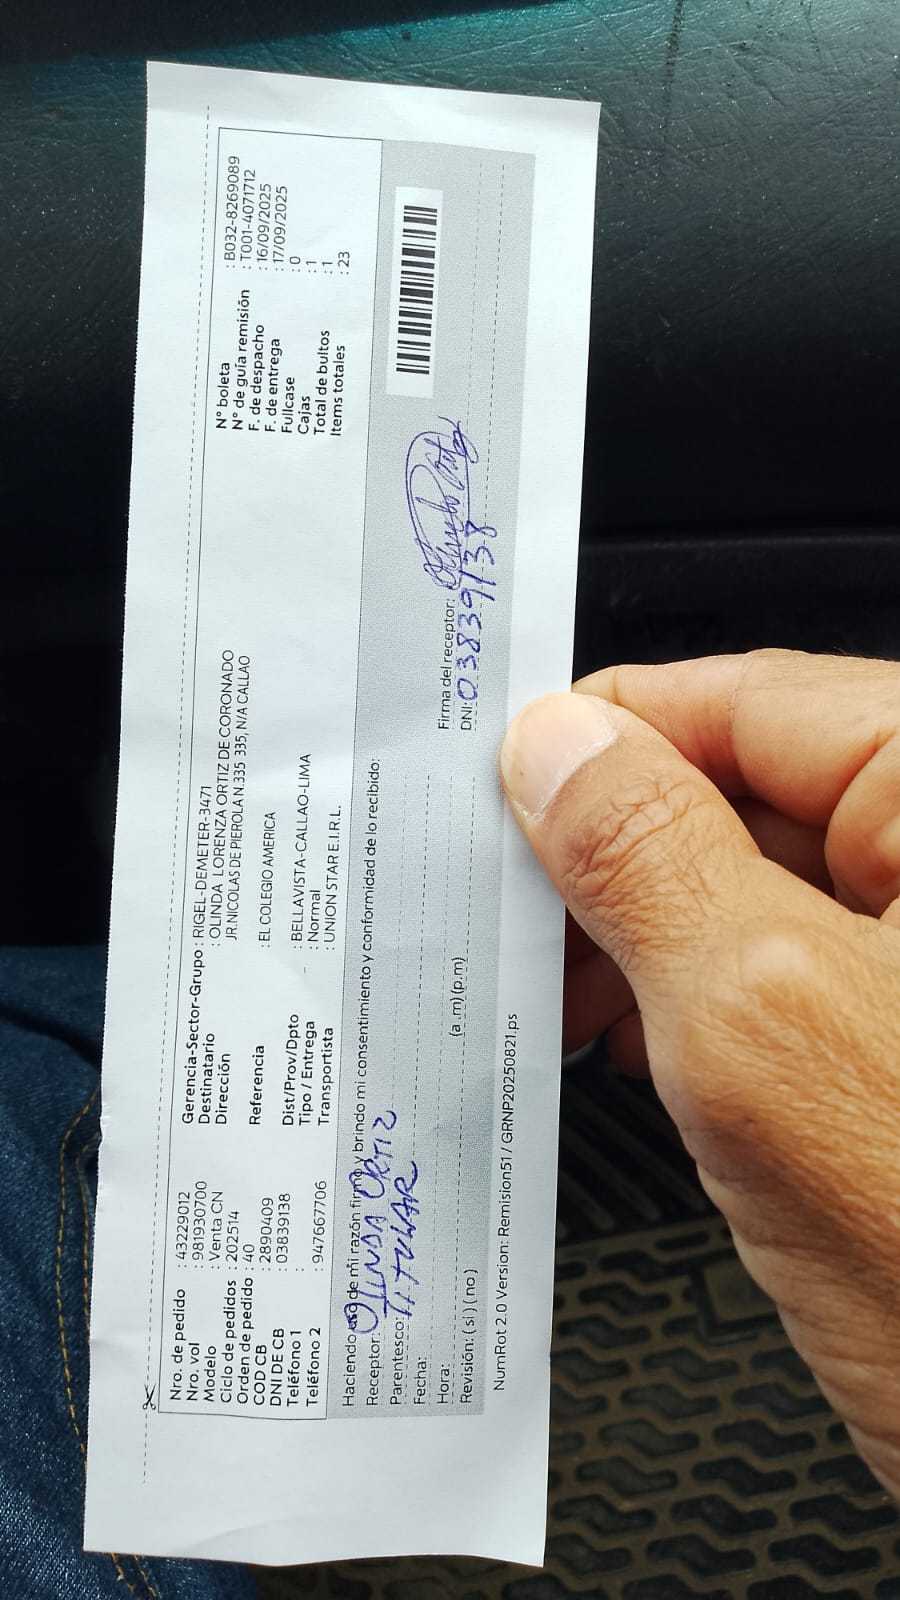 Nro. de pedido : 43229012
Nro. vol : 981930700
Modelo : Venta CN
Ciclo de pedidos : 202514
Orden de pedido : 40
COD CB : 2890409
DNI DE CB : 03839138
Teléfono 1 :
Teléfono 2 : 947667706
Gerencia-Sector-Grupo : RIGEL-DEMETER-3471
Destinatario : OLINDA LORENZA ORTIZ DE CORONADO
Dirección JR.NICOLAS DE PIEROLA N.335 335, N/A CALLAO
Referencia : EL COLEGIO AMERICA
Dist/Prov/Dpto : BELLAVISTA-CALLAO-LIMA
Tipo / Entrega : Normal
Transportista : UNION STAR E.I.R.L.
N° boleta : B032-8269089
N° de guía remisión : T001-4071712
F. de despacho : 16/09/2025
F. de entrega : 17/09/2025
Fullcase : 0
Cajas : 1
Total de bultos : 1
Items totales : 23
Haciendo uso de mi razón firmo y brindo mi consentimiento y conformidad de lo recibido:
Receptor: OLINDA ORTIZ
Parentesco: TITULAR
Fecha:
Hora: (a .m) (p.m)
Revisión: ( si ) ( no )
Firma del receptor:
DNI: 03839138
NumRot 2.0 Version: Remision51 / GRNP20250821.ps